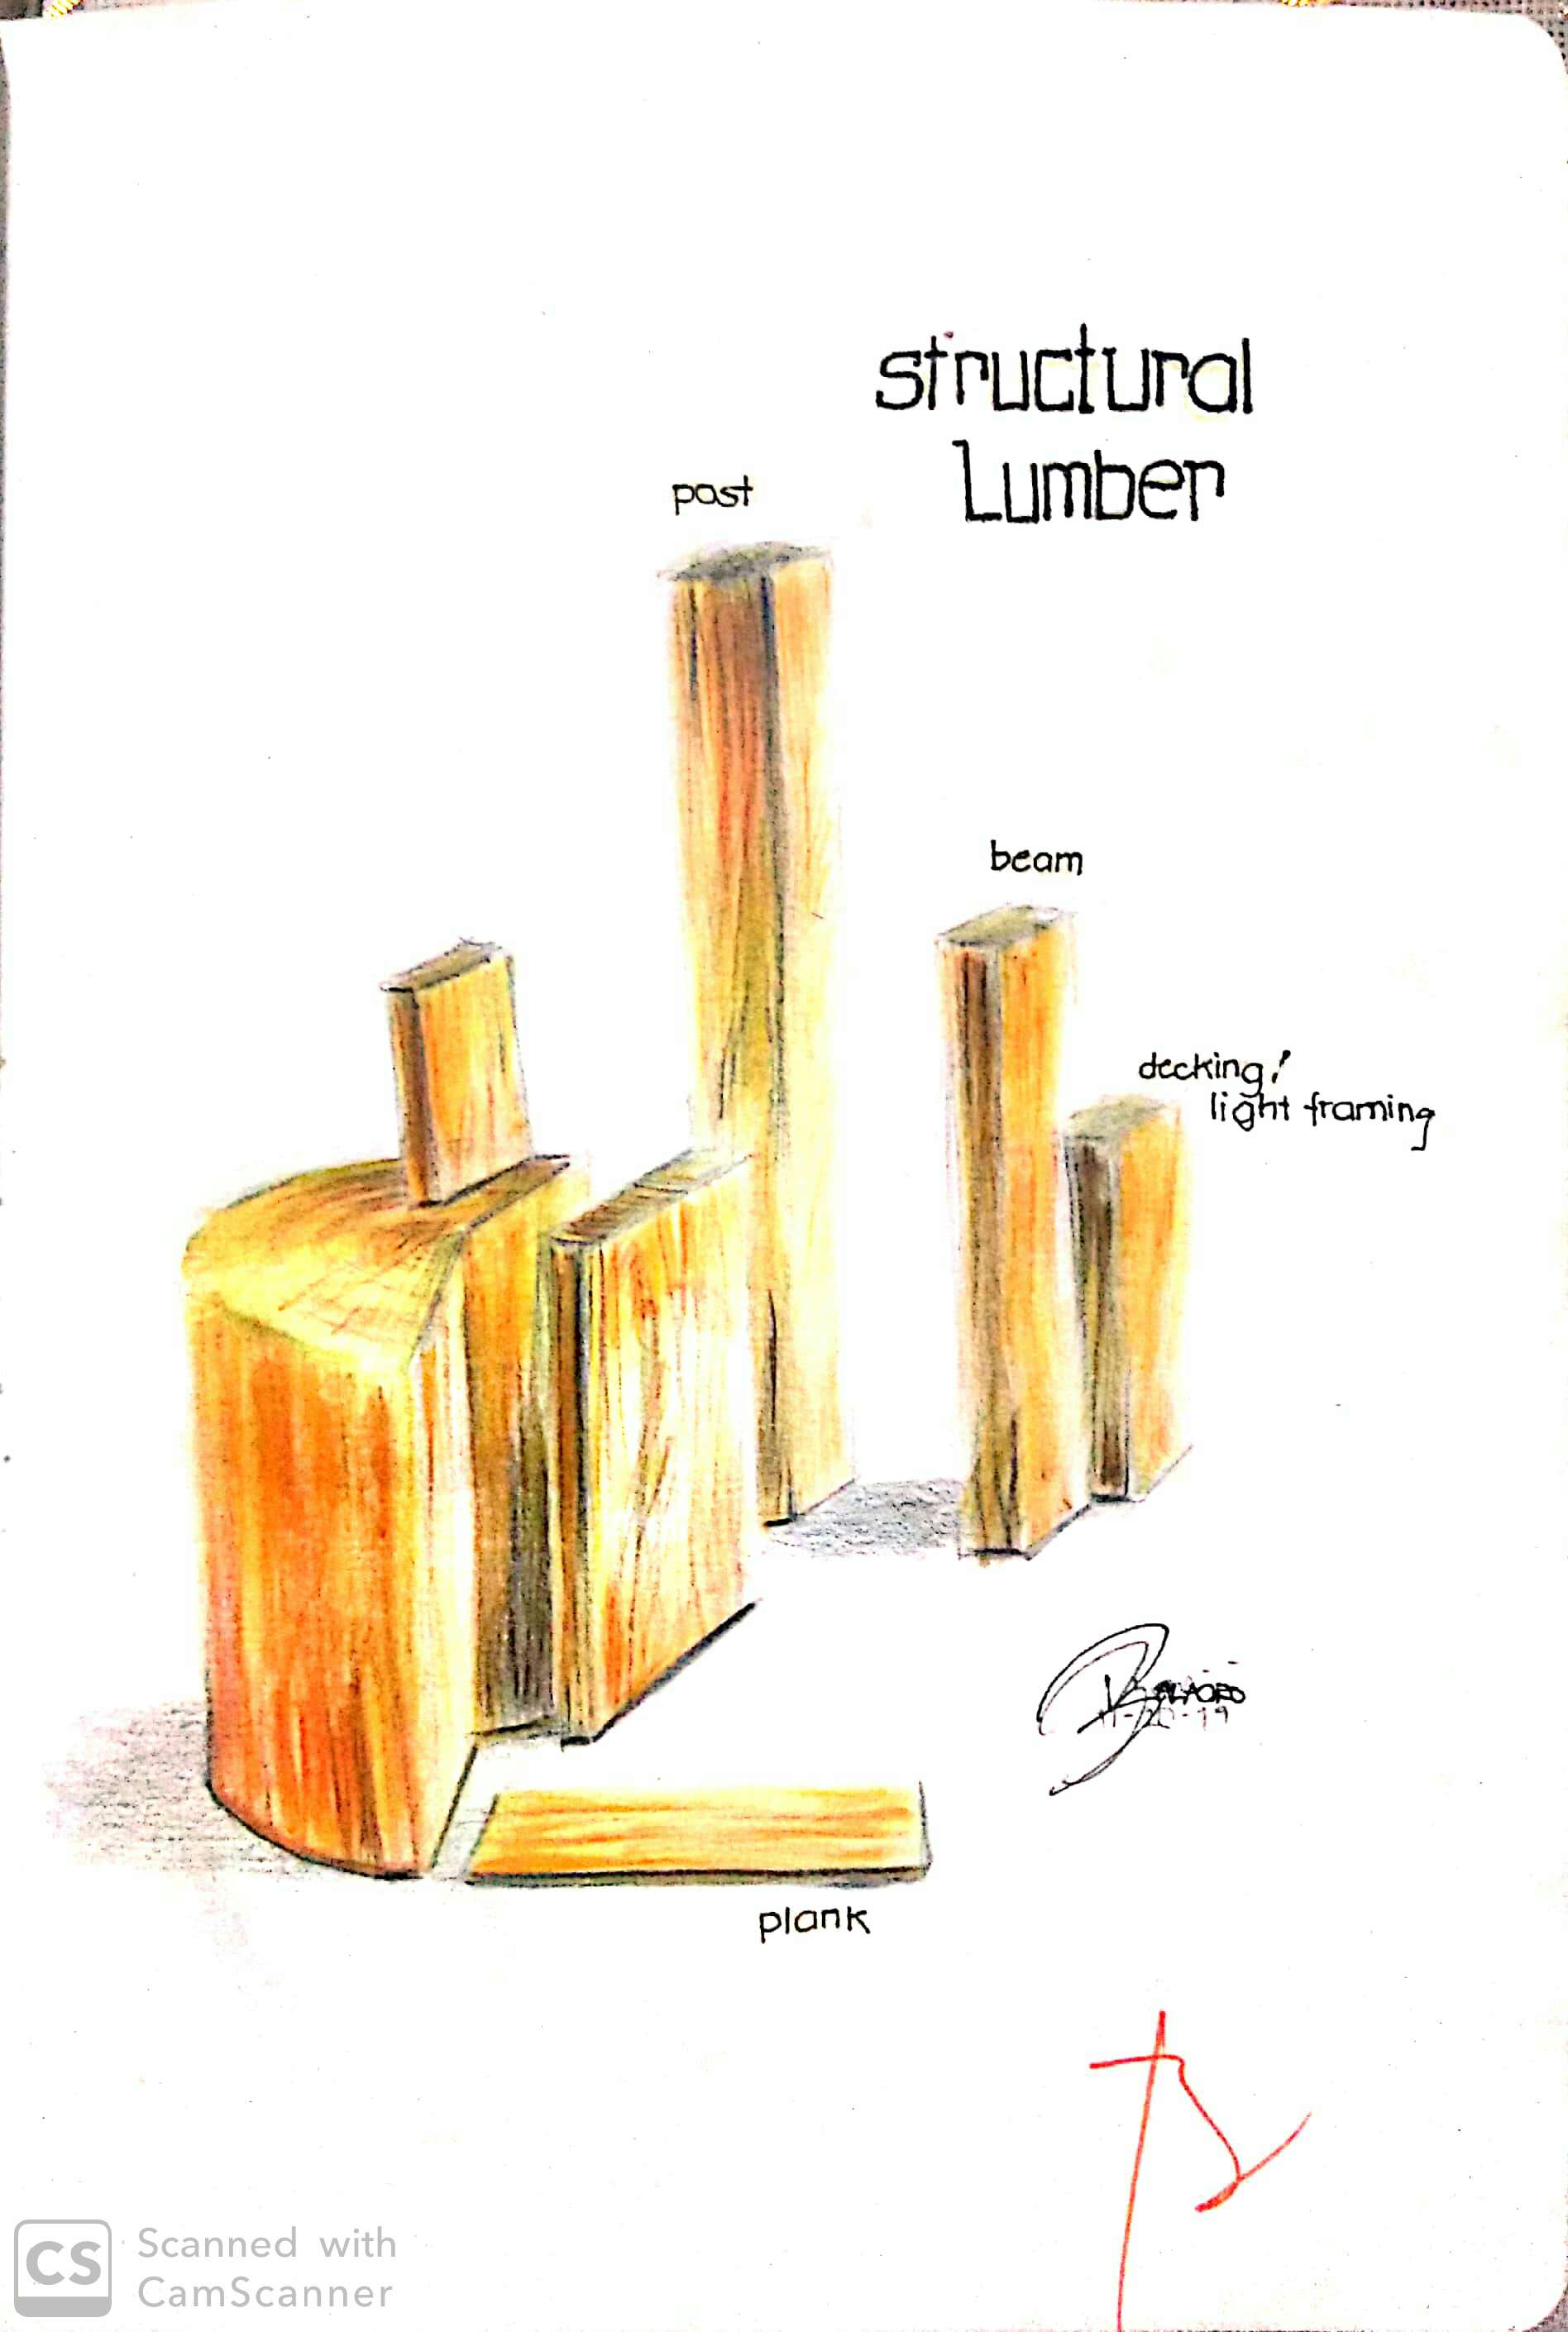 structural
Lumber
post
beam
decking/
light framing
11-20-19
plank
CS
Scanned with
CamScanner